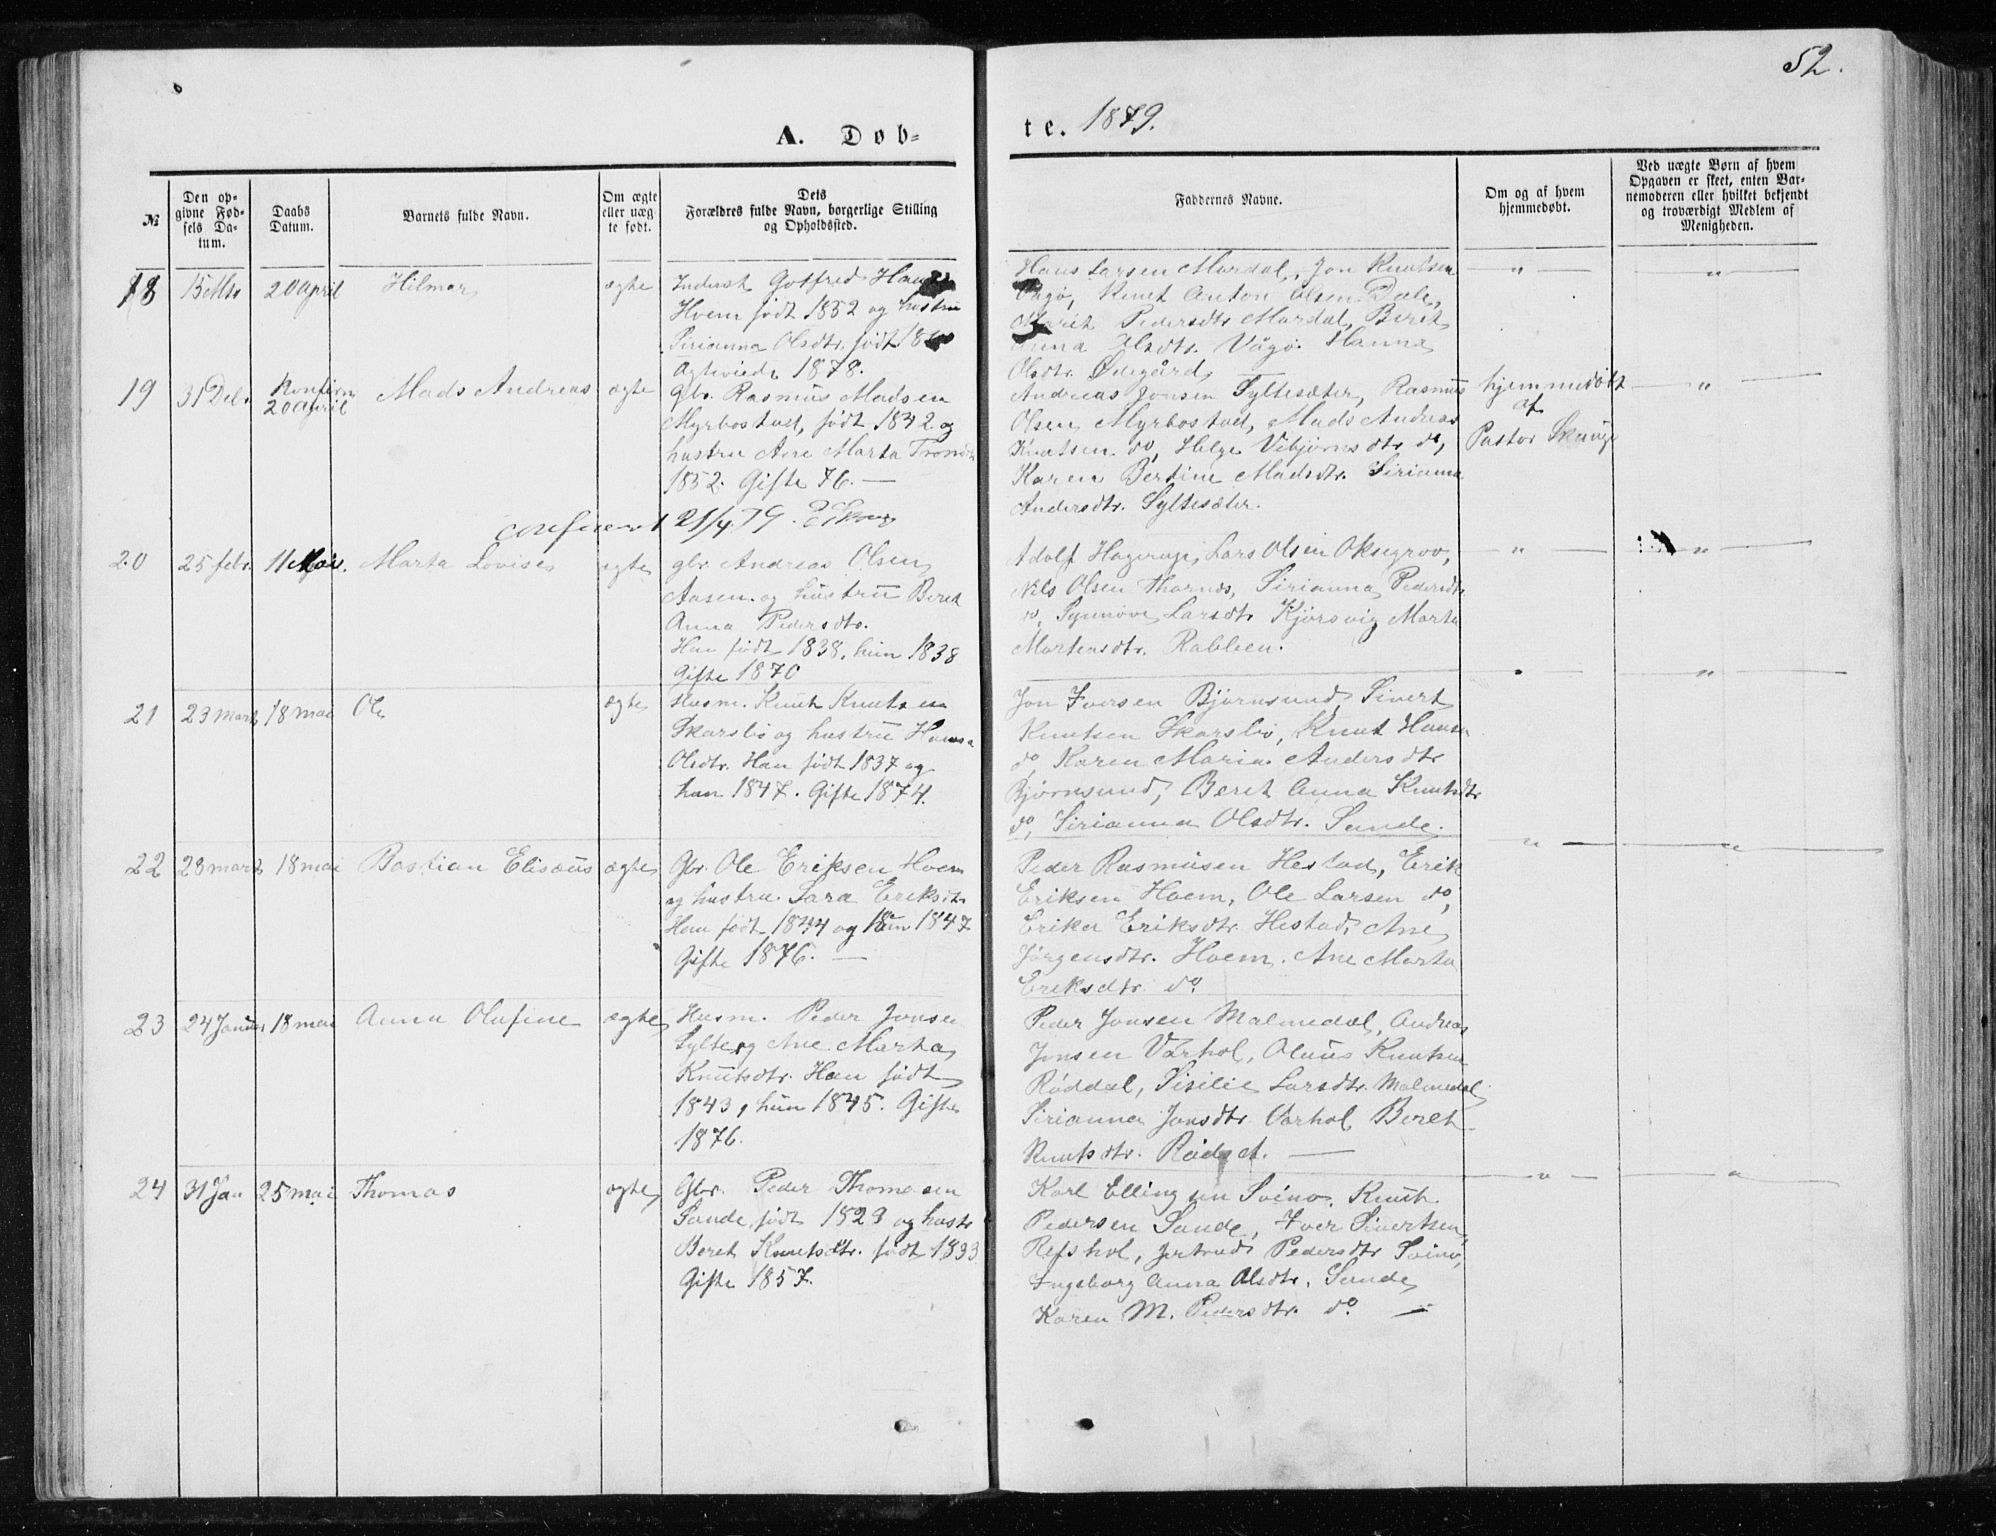 52.
A. Døb-
te. 1879.
№
Den op-
givne Fød-
sels Da-
tum.
Daabs
Datum.
Barnets fulde Navn.
Om ægte
eller uæg-
te født.
Dets
Forældres fulde Navn, borgerlige Stilling
og Opholdssted.
Faddernes Navne.
Om og af hvem
hjemmedøbt.
Ved uægte Børn af hvem
Opgaven er skeet, enten Bar-
nemoderen eller hvilket bekjendt
og troværdigt Medlem af
Menigheden.
18
20 April
Hilmar
ægte
Inderst Gotfred
Hoem født 1852 og hustru
Sirianna Olsdtr. født
Ægteviede 1878.
Hans Larsen Mordal, Jon Knutsen
Vågø, Knut Anton Olsen Dale,
Marit Pedersdtr. Mordal, Beret
Anna Olsdtr. Vågø. Hanna
Olsdtr. Ødegård,
19
31 Dec.
Konfirm
20 April
Mads Andreas
ægte
gbr. Rasmus Madsen
Myrbostad, født 1842 og
hustru Ane Marta
1852. Gifte 76. —
Andreas Jonsen Syltesæter, Rasmus
Olsen Myrbostad, Mads Andreas
Knutsen do, Helge Vibjørnsdtr. do,
Karen Bertine Madsdtr. Sirianna
Andersdtr. Syltesæter.
hjemmedøbt
af
Pastor
21/4 79.
20
25 febr.
11 Mai.
Marta Lovise
ægte
gbr. Andreas Olsen
Aasen og hustru Beret
Anna Pedersdtr.
Han født 1838, hun 1838
Gifte 1870
Adolf Hagerup, Lars Olsen Oksegrov,
Nils Olsen Thornes, Sirianna Pedersdtr
do, Synnøve Larsdtr. Kjørsvig Marta
Mortensdtr. Rabben.
21
23 marts
18 mai
Ole
ægte
Husm. Knut Knutsen
Skarslio og hustru Hanna
Olsdtr. Han født 1837 og
hun 1847. Gifte 1874.
Jon Iversen Bjørnsund, Sivert
Knutsen Skarslio, Knut Hansen
do, Karen Maria Andersdtr
Bjørnsund, Beret Anna Knutsdtr
do, Sirianna Olsdtr. Sande.
22
28 marts
18 mai
Bastian Elisæus
ægte
Gbr. Ole Eriksen Hoem
og hustru Sara Eriksdtr.
Han født 1844 og hun 1847
Gifte 1876. —
Peder Rasmusen Hestad, Erik
Eriksen Hoem, Ole Larsen do,
Erika Eriksdtr. Hestad, Ane
Jørgensdtr. Hoem. Ane Marta
Eriksdtr. do.
23
24 Januar
18 mai
Anna Olufine
ægte
Husm. Peder Jonsen
Sylte og Ane Marta
Knutsdtr. Han født
1843, hun 1845. Gifte
1876.
Peder Jonsen Malmedal, Andreas
Jonsen Varhol, Olaus Knutsen
Røddal, Sisilie Larsdtr. Malmedal
Sirianna Jonsdtr. Varhol Beret
Knutsdtr. Rødset. —
24
31 Jan
25 mai
Thomas
ægte
Gbr. Peder Thomasen
Sande født 1829 og hustr.
Beret Knutsdtr. født 1833
Gifte 1857.
Karl Ellingsen Svinø, Knut
Pedersen Sande, Iver Sivertsen
Refshol, Jertrud Pedersdtr Svinø,
Ingeborg Anna Olsdtr. Sande
Karen M. Pedersdtr. do. —